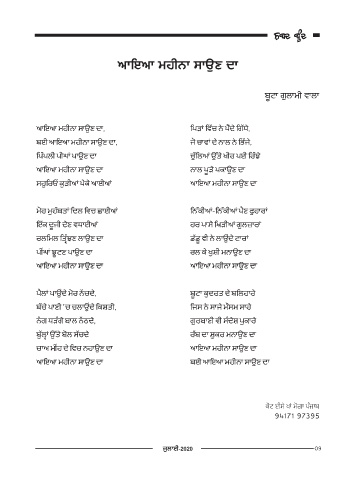 ਆਇਆ ਮਹੀਨਾ ਸਾਉਣ ਦਾ
ਬੂਟਾ ਗੁਲਾਮੀ ਵਾਲਾ
ਆਇਆ ਮਹੀਨਾ ਸਾਉਣ ਦਾ,
ਬਈ ਆਇਆ ਮਹੀਨਾ ਸਾਉਣ ਦਾ,
ਪਿੱਪਲੀ ਪੀਂਘਾਂ ਪਾਉਣ ਦਾ
ਆਇਆ ਮਹੀਨਾ ਸਾਉਣ ਦਾ
ਸਹੁਰਿਓਂ ਕੁੜੀਆਂ ਪੇਕੇ ਆਈਆਂ
ਮੋਹ ਮੁਹੱਬਤਾਂ ਦਿਲ ਵਿਚ ਛਾਈਆਂ
ਇੱਕ ਦੂਜੀ ਦੇਣ ਵਧਾਈਆਂ
ਰਲਮਿਲ ਤ੍ਰਿੰਞਣ ਲਾਉਣ ਦਾ
ਪੀਂਘਾਂ ਝੂਟਣ ਪਾਉਣ ਦਾ
ਆਇਆ ਮਹੀਨਾ ਸਾਉਣ ਦਾ
ਪੈਲਾਂ ਪਾਉਂਦੇ ਮੋਰ ਨੱਚਦੇ,
ਬੱਚੇ ਪਾਣੀ 'ਚ ਚਲਾਉਂਦੇ ਕਿਸ਼ਤੀ,
ਨੰਗ ਧੜੰਗੇ ਬਾਲ ਨੱਠਦੇ,
ਬੁੱਲ੍ਹਾਂ ਉੱਤੇ ਬੋਲ ਸੱਚਦੇ
ਚਾਅ ਮੀਂਹ ਦੇ ਵਿਚ ਨਹਾਉਣ ਦਾ
ਆਇਆ ਮਹੀਨਾ ਸਾਉਣ ਦਾ
ਪਿੜਾਂ ਵਿੱਚ ਨੇ ਪੈਂਦੇ ਗਿੱਧੇ,
ਜੋ ਚਾਵਾਂ ਦੇ ਨਾਲ ਨੇ ਭਿੱਜੇ,
ਚੁੱਲਿਆਂ ਉੱਤੇ ਖੀਰ ਪਈ ਰਿੱਝੇ
ਨਾਲ ਪੂੜੇ ਪਕਾਉਣ ਦਾ
ਆਇਆ ਮਹੀਨਾ ਸਾਉਣ ਦਾ
ਨਿੱਕੀਆਂ-ਨਿੱਕੀਆਂ ਪੈਣ ਫੁਹਾਰਾਂ
ਹਰ ਪਾਸੇ ਖਿੜੀਆਂ ਗੁਲਜ਼ਾਰਾਂ
ਡੱਡੂ ਵੀ ਨੇ ਲਾਉਂਦੇ ਟਾਰਾਂ
ਰਲ ਕੇ ਖੁਸ਼ੀ ਮਨਾਉਣ ਦਾ
ਆਇਆ ਮਹੀਨਾ ਸਾਉਣ ਦਾ
ਬੂਟਾ ਕੁਦਰਤ ਦੇ ਬਲਿਹਾਰੇ
ਜਿਸ ਨੇ ਸਾਜੇ ਮੌਸਮ ਸਾਰੇ
ਗੁਰਬਾਣੀ ਵੀ ਸੰਦੇਸ਼ ਪੁਕਾਰੇ
ਰੱਬ ਦਾ ਸ਼ੁਕਰ ਮਨਾਉਣ ਦਾ
ਆਇਆ ਮਹੀਨਾ ਸਾਉਣ ਦਾ
ਬਈ ਆਇਆ ਮਹੀਨਾ ਸਾਉਣ ਦਾ
ਕੋਟ ਈਸੇ ਖਾਂ ਮੋਗਾ ਪੰਜਾਬ
94171 97395
ਜੁਲਾਈ-2020
09